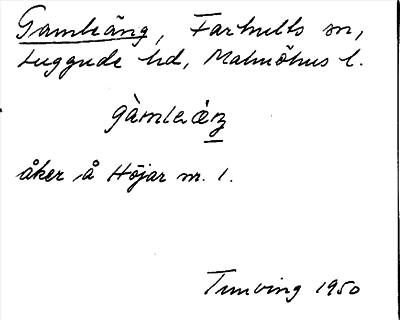 Gamleäng, Farhults sn,
Luggude hd, Malmöhus l.
gàmla äŋ
åker å Höjar nr. 1.
Tunving 1950